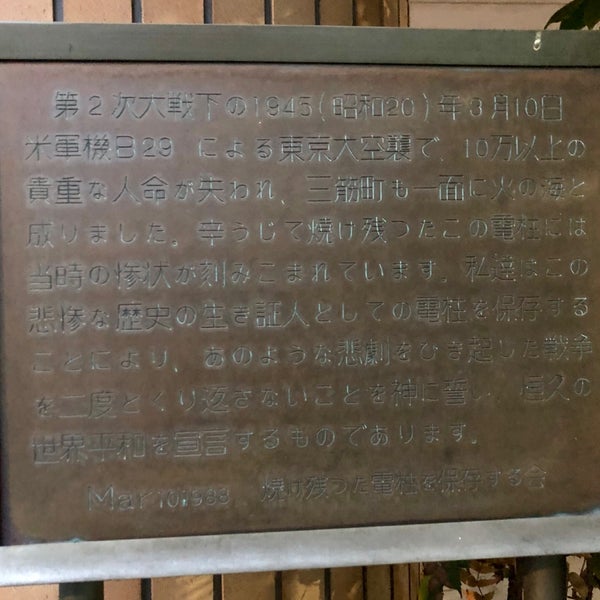 第2次大戦下の1945(昭和20)年3月10日
米軍機B29 による東京大空襲で、10万以上の
貴重な人命が失われ、三筋町も一面に火の海と
成りました。辛うじて焼け残つたこの電柱には
当時の惨状が刻みこまれています。私達はこの
悲惨な歴史の生き証人としての電柱を保存する
ことにより、あのような悲劇をひき起した戦争
を二度とくり返さないことを神に誓い 恒久の
世界平和を宣言するものであります。
Mar10.1988 焼け残つた電柱を保存する会